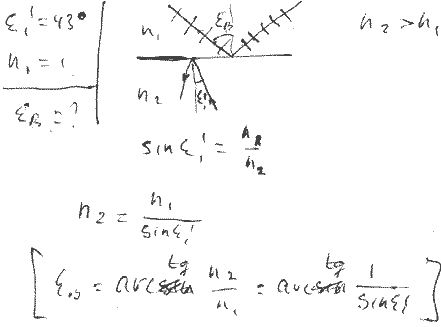 ε₁' = 43°
n₁ = 1
ε_B = ?
n₁
ε_B
n₂ > n₁
n₂
ε₁'
sin ε₁' = n₁/n₂
n₂ = n₁/sin ε₁'
[ε_B = arctg n₂/n₁ = arctg 1/sin ε₁']